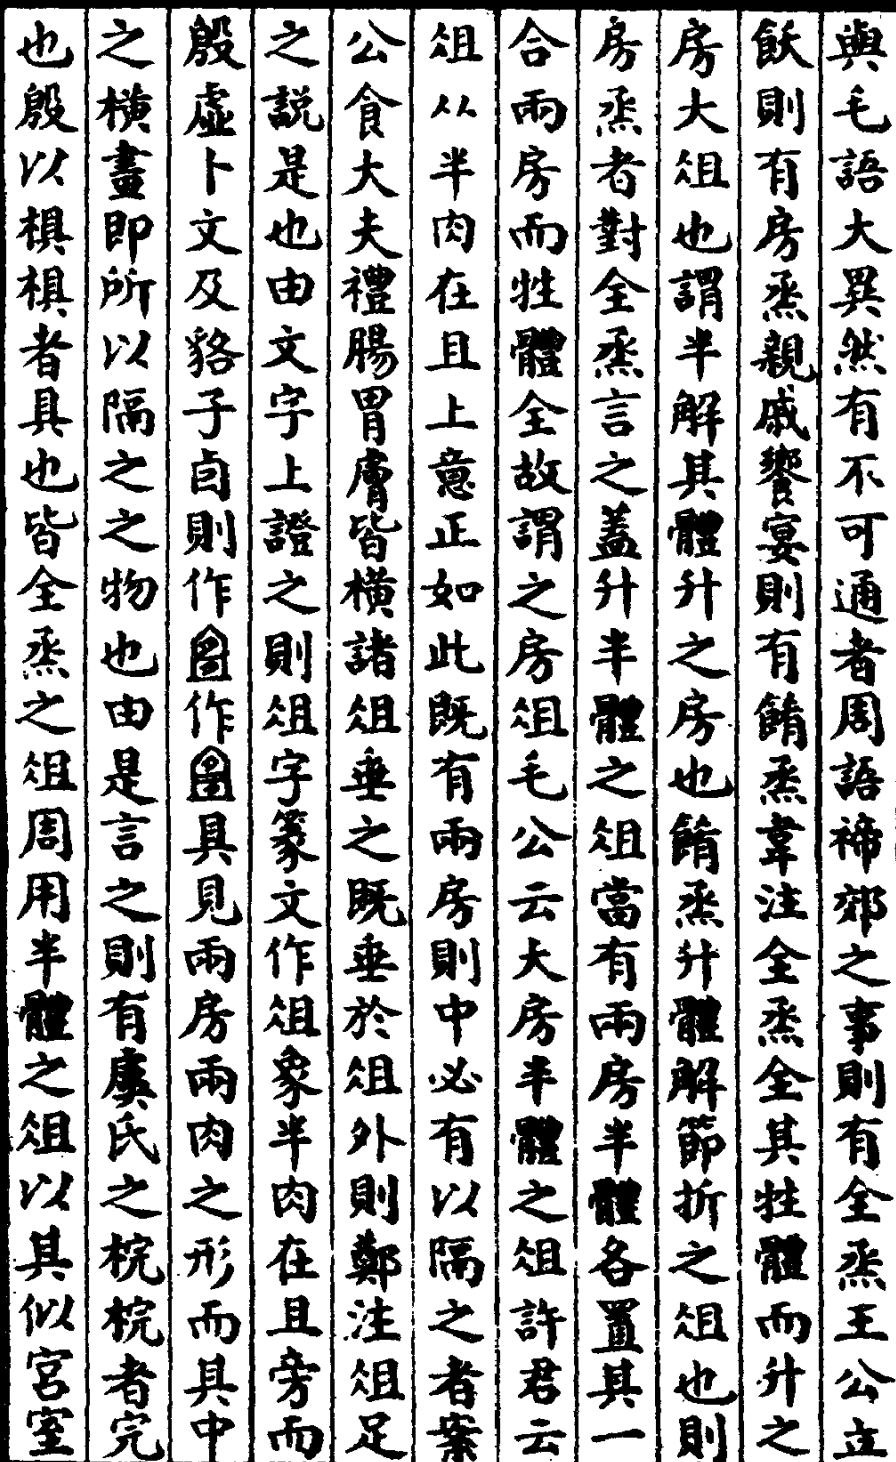 與毛語大異然有不可通者周語禘郊之事則有全烝王公立
飫則有房烝親戚饗宴則有餚烝韋注全烝全其牲體而升之
房大俎也謂半解其體升之房也餚烝升體解節折之俎也則
房烝者對全烝言之蓋升半體之俎當有兩房半體各置其一
合兩房而牲體全故謂之房俎毛公云大房半體之俎許君云
俎从半肉在且上意正如此既有兩房則中必有以隔之者案
公食大夫禮腸胃膚皆橫諸俎垂之既垂於俎外則鄭注俎足
之說是也由文字上證之則俎字篆文作俎象半肉在且旁而
殷虛卜文及貉子卣則作作具見兩房兩肉之形而其中
之橫畫即所以隔之之物也由是言之則有虞氏之梡梡者完
也殷以椇椇者具也皆全烝之俎周用半體之俎以其似宮室